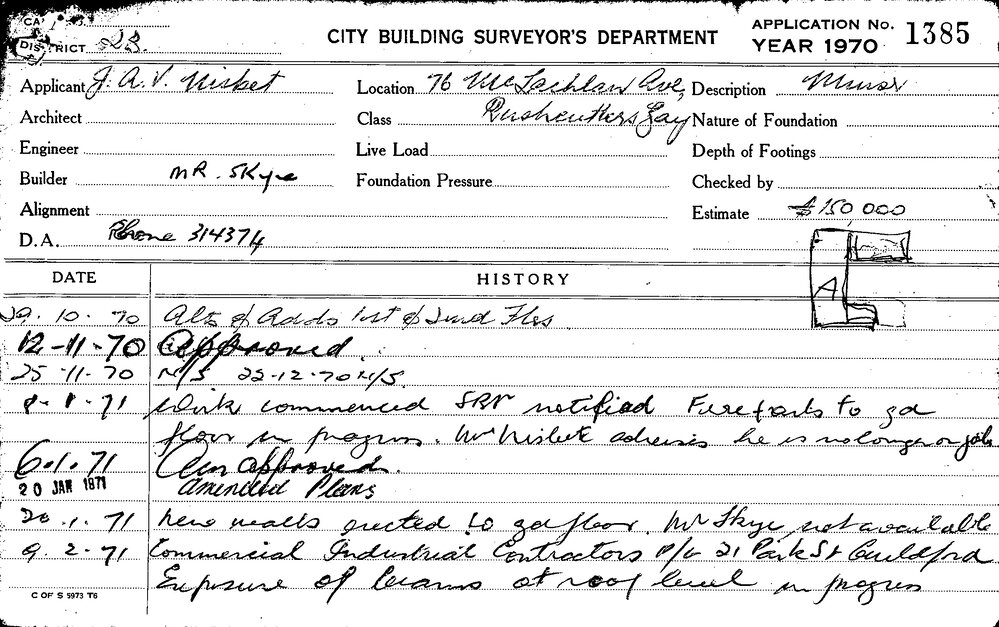 CITY BUILDING SURVEYOR'S DEPARTMENT
APPLICATION No. 1385
YEAR 1970
DISTRICT 23.
Applicant J. A. V. Nisbet
Location 76 McLachlan Ave,
Description Minor
Architect
Class Rushcutters Bay
Nature of Foundation
Engineer
Live Load
Depth of Footings
Builder MR. SKye
Foundation Pressure
Checked by
Alignment
Estimate $150,000
D.A. Phone 314374
A
DATE
HISTORY
29. 10. 70 Alts & Adds 1st & 2nd Flrs.
12-11-70 Approved.
25-11-70 N/S 22-12-70 N/S
71 Work commenced notified to gd
floor in progress. Mr Nisbet advises he is no longer on job
6.1.71 Am approved.
20 JAN 1971 Amended Plans
20.1.71 New walls erected to gd floor. Mr Skye not available
9.2.71 Commercial Industrial Contractors P/L 21 Park St Guildford
Exposure of beams at roof level in progress
C OF S 5973 T6